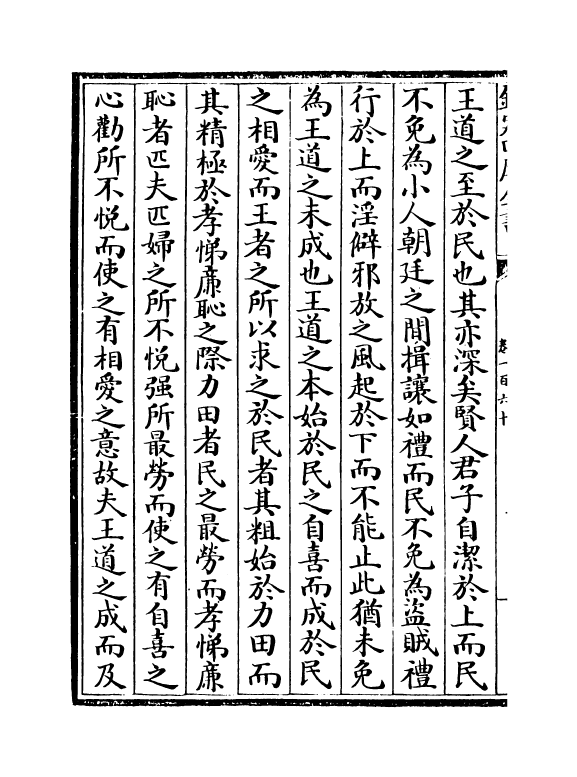 王道之至於民也其亦深矣賢人君子自潔於上而民
不免為小人朝廷之間揖讓如禮而民不免為盜賊禮
行於上而淫僻邪放之風起於下而不能止此猶未免
為王道之未成也王道之本始於民之自喜而成於民
之相愛而王者之所以求之於民者其粗始於力田而
其精極於孝悌廉恥之際力田者民之最勞而孝悌廉
恥者匹夫匹婦之所不悅强所最勞而使之有自喜之
心勸所不悅而使之有相愛之意故夫王道之成而及